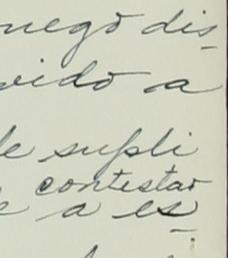 ruego dis
vido a
le supli
contestar
e a es